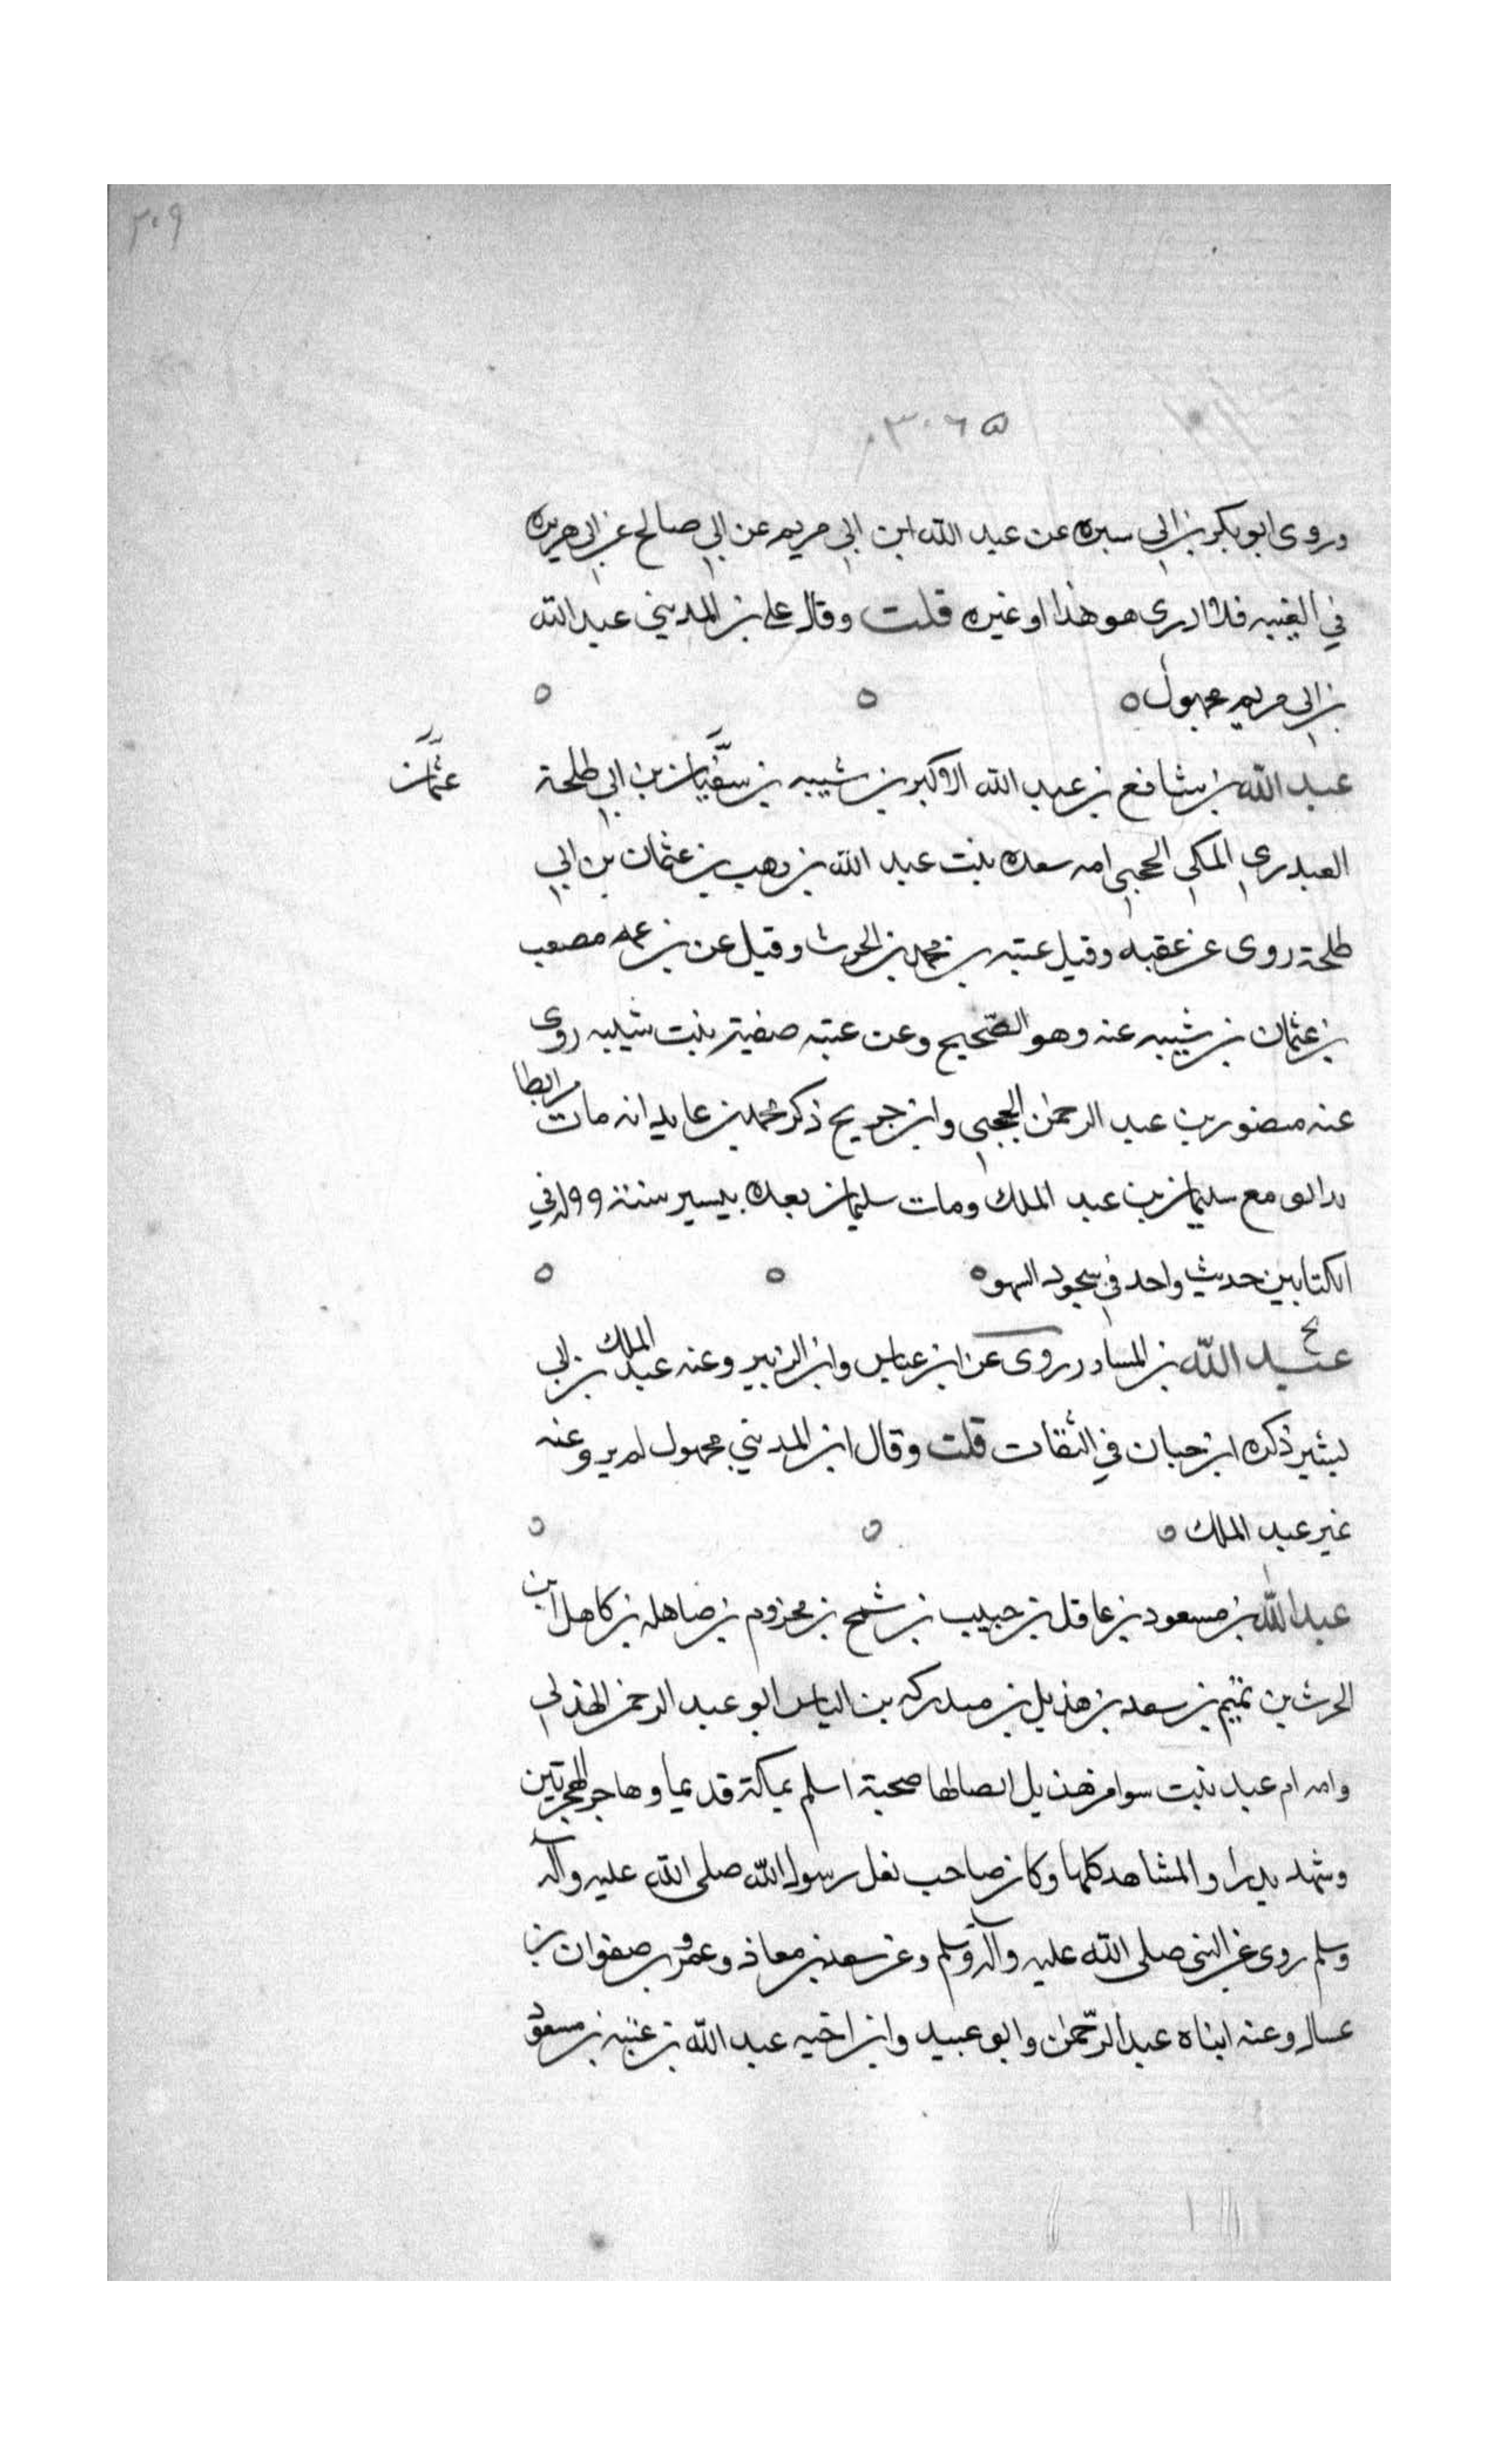 ٣٠٩
٣٠٦٥
وروى ابو بكر بن ابي سبره عن عبد الله ابن ابي مريم عن ابي صالح عن ابي هريره
في الغيبه فلا ادرى هو هذا او غيره قلت وقال علي بن المديني عبد الله
بن ابي مريم مجهول ٥ ٥ ٥
عبد الله بن مسافع بن عبد الله الاكبر بن شيبه بن سفيان بن ابي طلحة
عثمان
العبدرى المكي الحجبي امه سعده بنت عبد الله بن وهب بن عثمان بن ابي
طلحة روى عن عقبه وقيل عتبه بن محمد بن الحرث وقيل عن بن عمه مصعب
بن عثمان بن شيبه عنه وهو الصحيح وعن عتبه صفية بنت شيبه روى
عنه منصور بن عبد الرحمن الحجبي وابن جريج ذكر محمد بن عايد انه مات مرابطا
بدابق مع سليمان بن عبد الملك ومات سليمان بعده بيسير سنة ٩٩ له في
الكتابين حديث واحد في سجود السهو ٥ ٥ ٥
بخ
عبد الله بن المساور روى عن ابن عباس وابن الزبير وعنه عبد الملك بن ابي
بشير ذكره ابن حبان في الثقات قلت وقال ابن المديني مجهول لم يرو عنه
غير عبد الملك ٥ ٥ ٥
عبد الله بن مسعود بن عاقل بن حبيب بن شمخ بن مخزوم بن صاهله بن كاهل ابن
الحرث بن تميم بن سعد بن هذيل بن مدركه بن الياس ابو عبد الرحمن الهذلي
وامه ام عبد بنت سوا من هذيل ايضا لها صحبة اسلم بمكة قديما وهاجر الهجرتين
وشهد بدرا والمشاهد كلها وكان صاحب نعل رسول الله صلى الله عليه وآله
وسلم روى عن النبي صلى الله عليه وآله وسلم وعن سعد بن معاذ وعمر وصفوان بن
عسال وعنه ابناه عبد الرحمن وابو عبيد وابن اخيه عبد الله بن عتبه بن مسعود